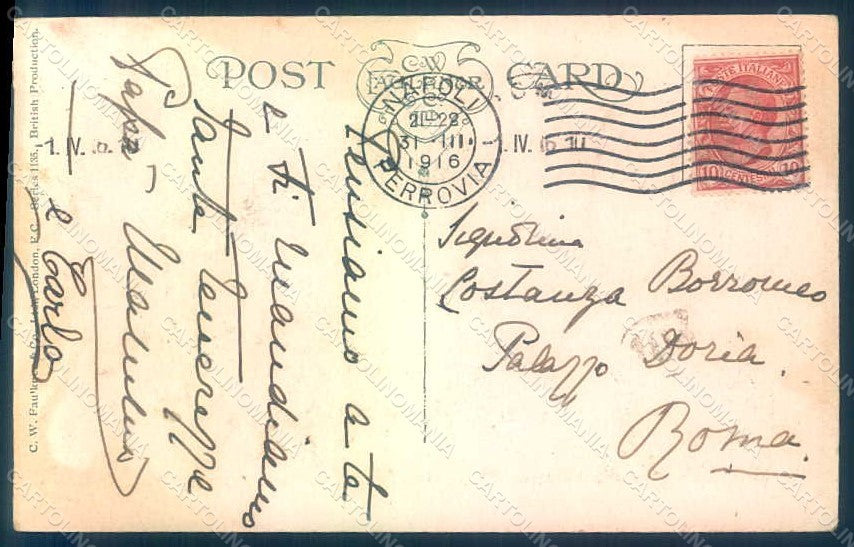 POST CARD
C.W.
FAULKNER
& Co
LTD
NAPOLI
21-22
31 III
1916
FERROVIA
1. IV. 16. 10
POSTE ITALIANE
10 CENTESIMI 10
Signorina
Costanza Borromeo
Palazzo Doria
Roma
Pensiamo a te
e ti mandiamo
tante tenerezze
Papà, Mamma
e Carlo
C. W. Faulkner & Co. Ltd. London, E.C. Series 1135. British Production.
CARTOLINOMANIA